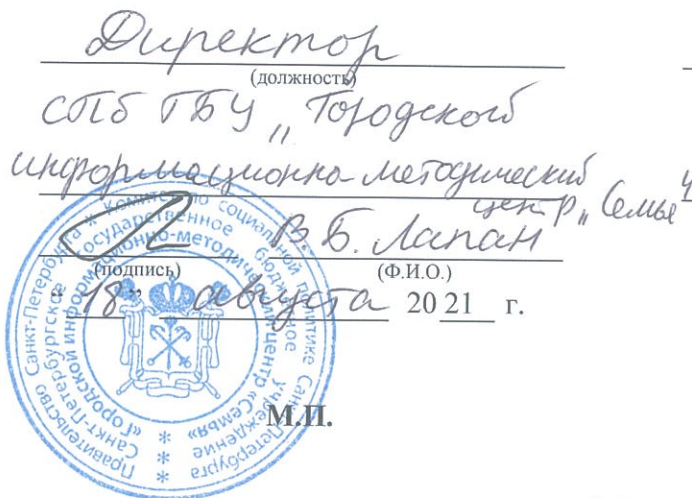 Директор
(должность)
СПб ГБУ „Городской
информационно-методический
центр „Семья“
В.Б. Лапан
(подпись) (Ф.И.О.)
“18” августа 2021 г.
М.П.
Правительство Санкт-Петербурга * Комитет по социальной политике Санкт-Петербурга
Санкт-Петербургское государственное бюджетное учреждение
«Городской информационно-методический центр «Семья»